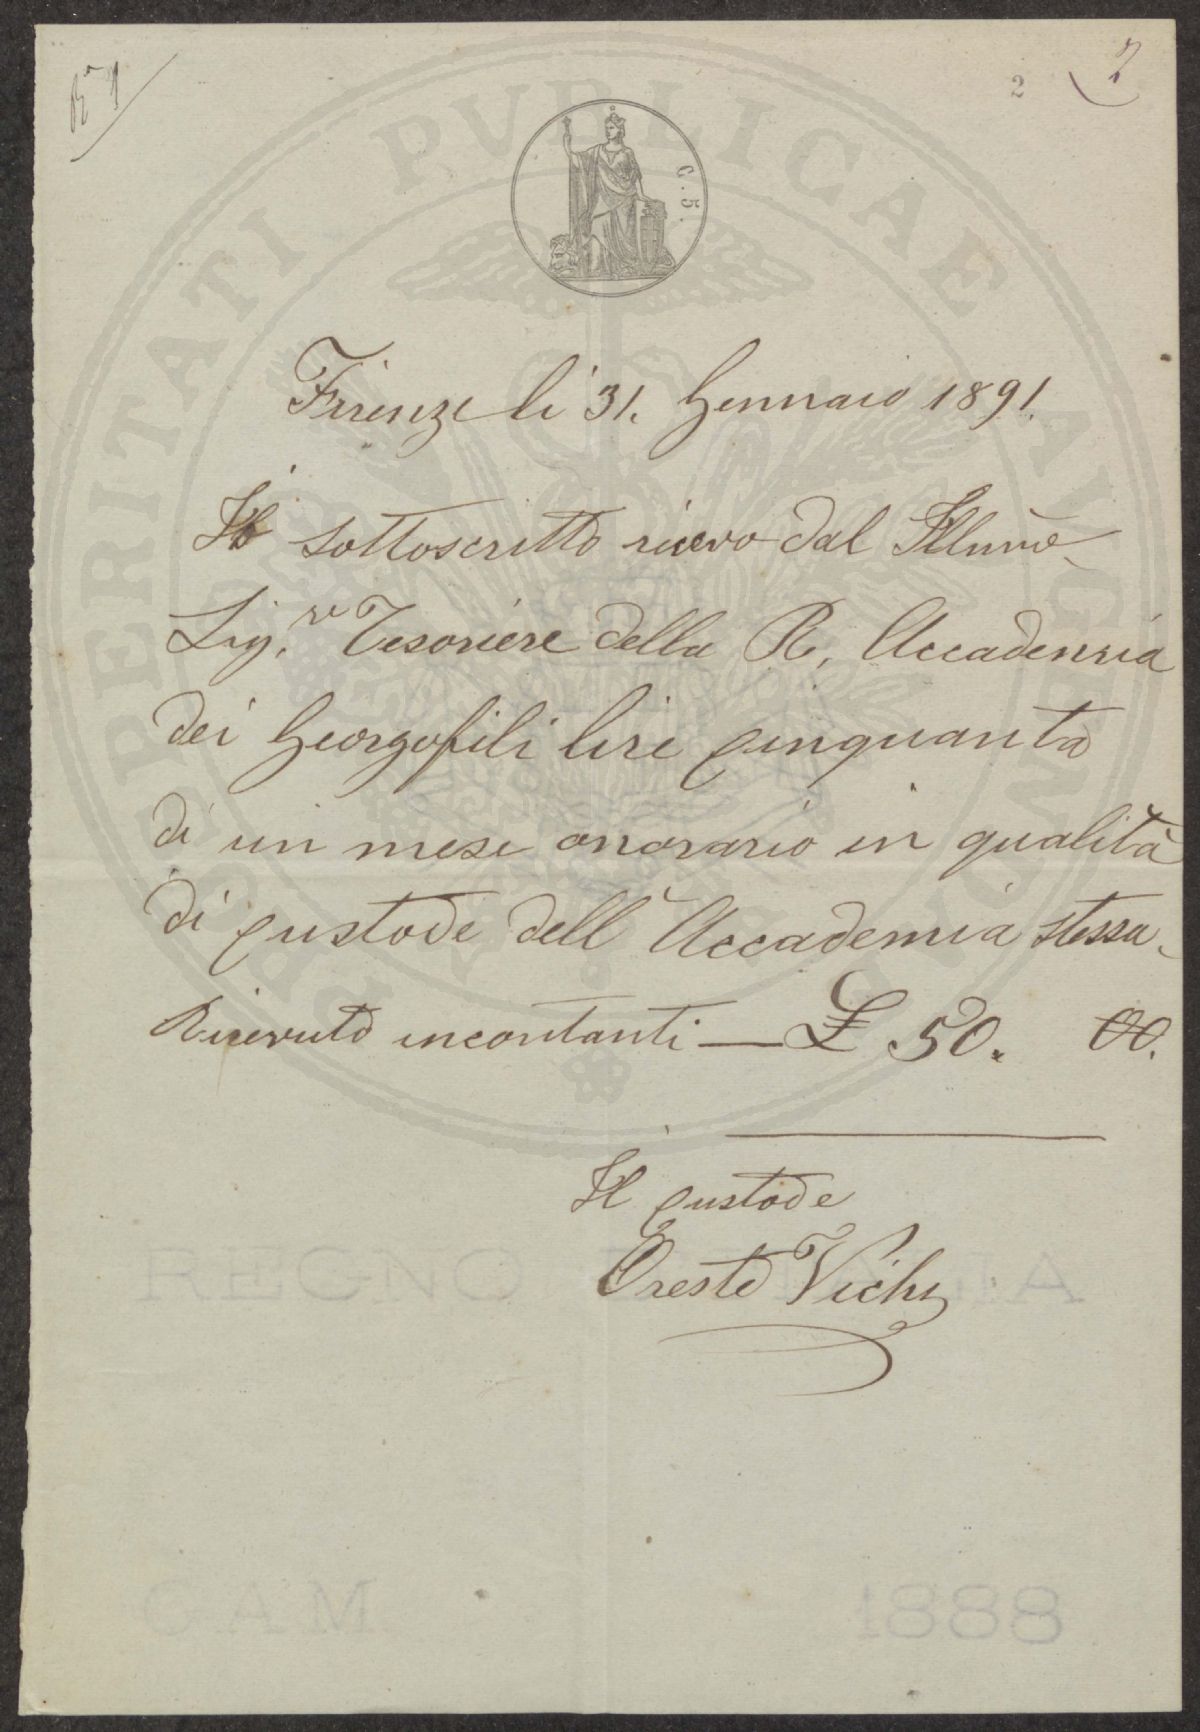 2
2
C. 5.
PROSPERITATI PVBLICAE AVGENDAE
Firenze li 31. Gennaio 1891.
Io sottoscritto ricevo dal Illumo
Sig.r Tesoriere della R. Accademia
dei Georgofili lire cinquanta
di un mese onorario in qualità
di custode dell'Accademia stessa
Ricevuto incontanti — £ 50. 00.
Il custode
Oreste Vichi
REGNO D'ITALIA
CAM 1888